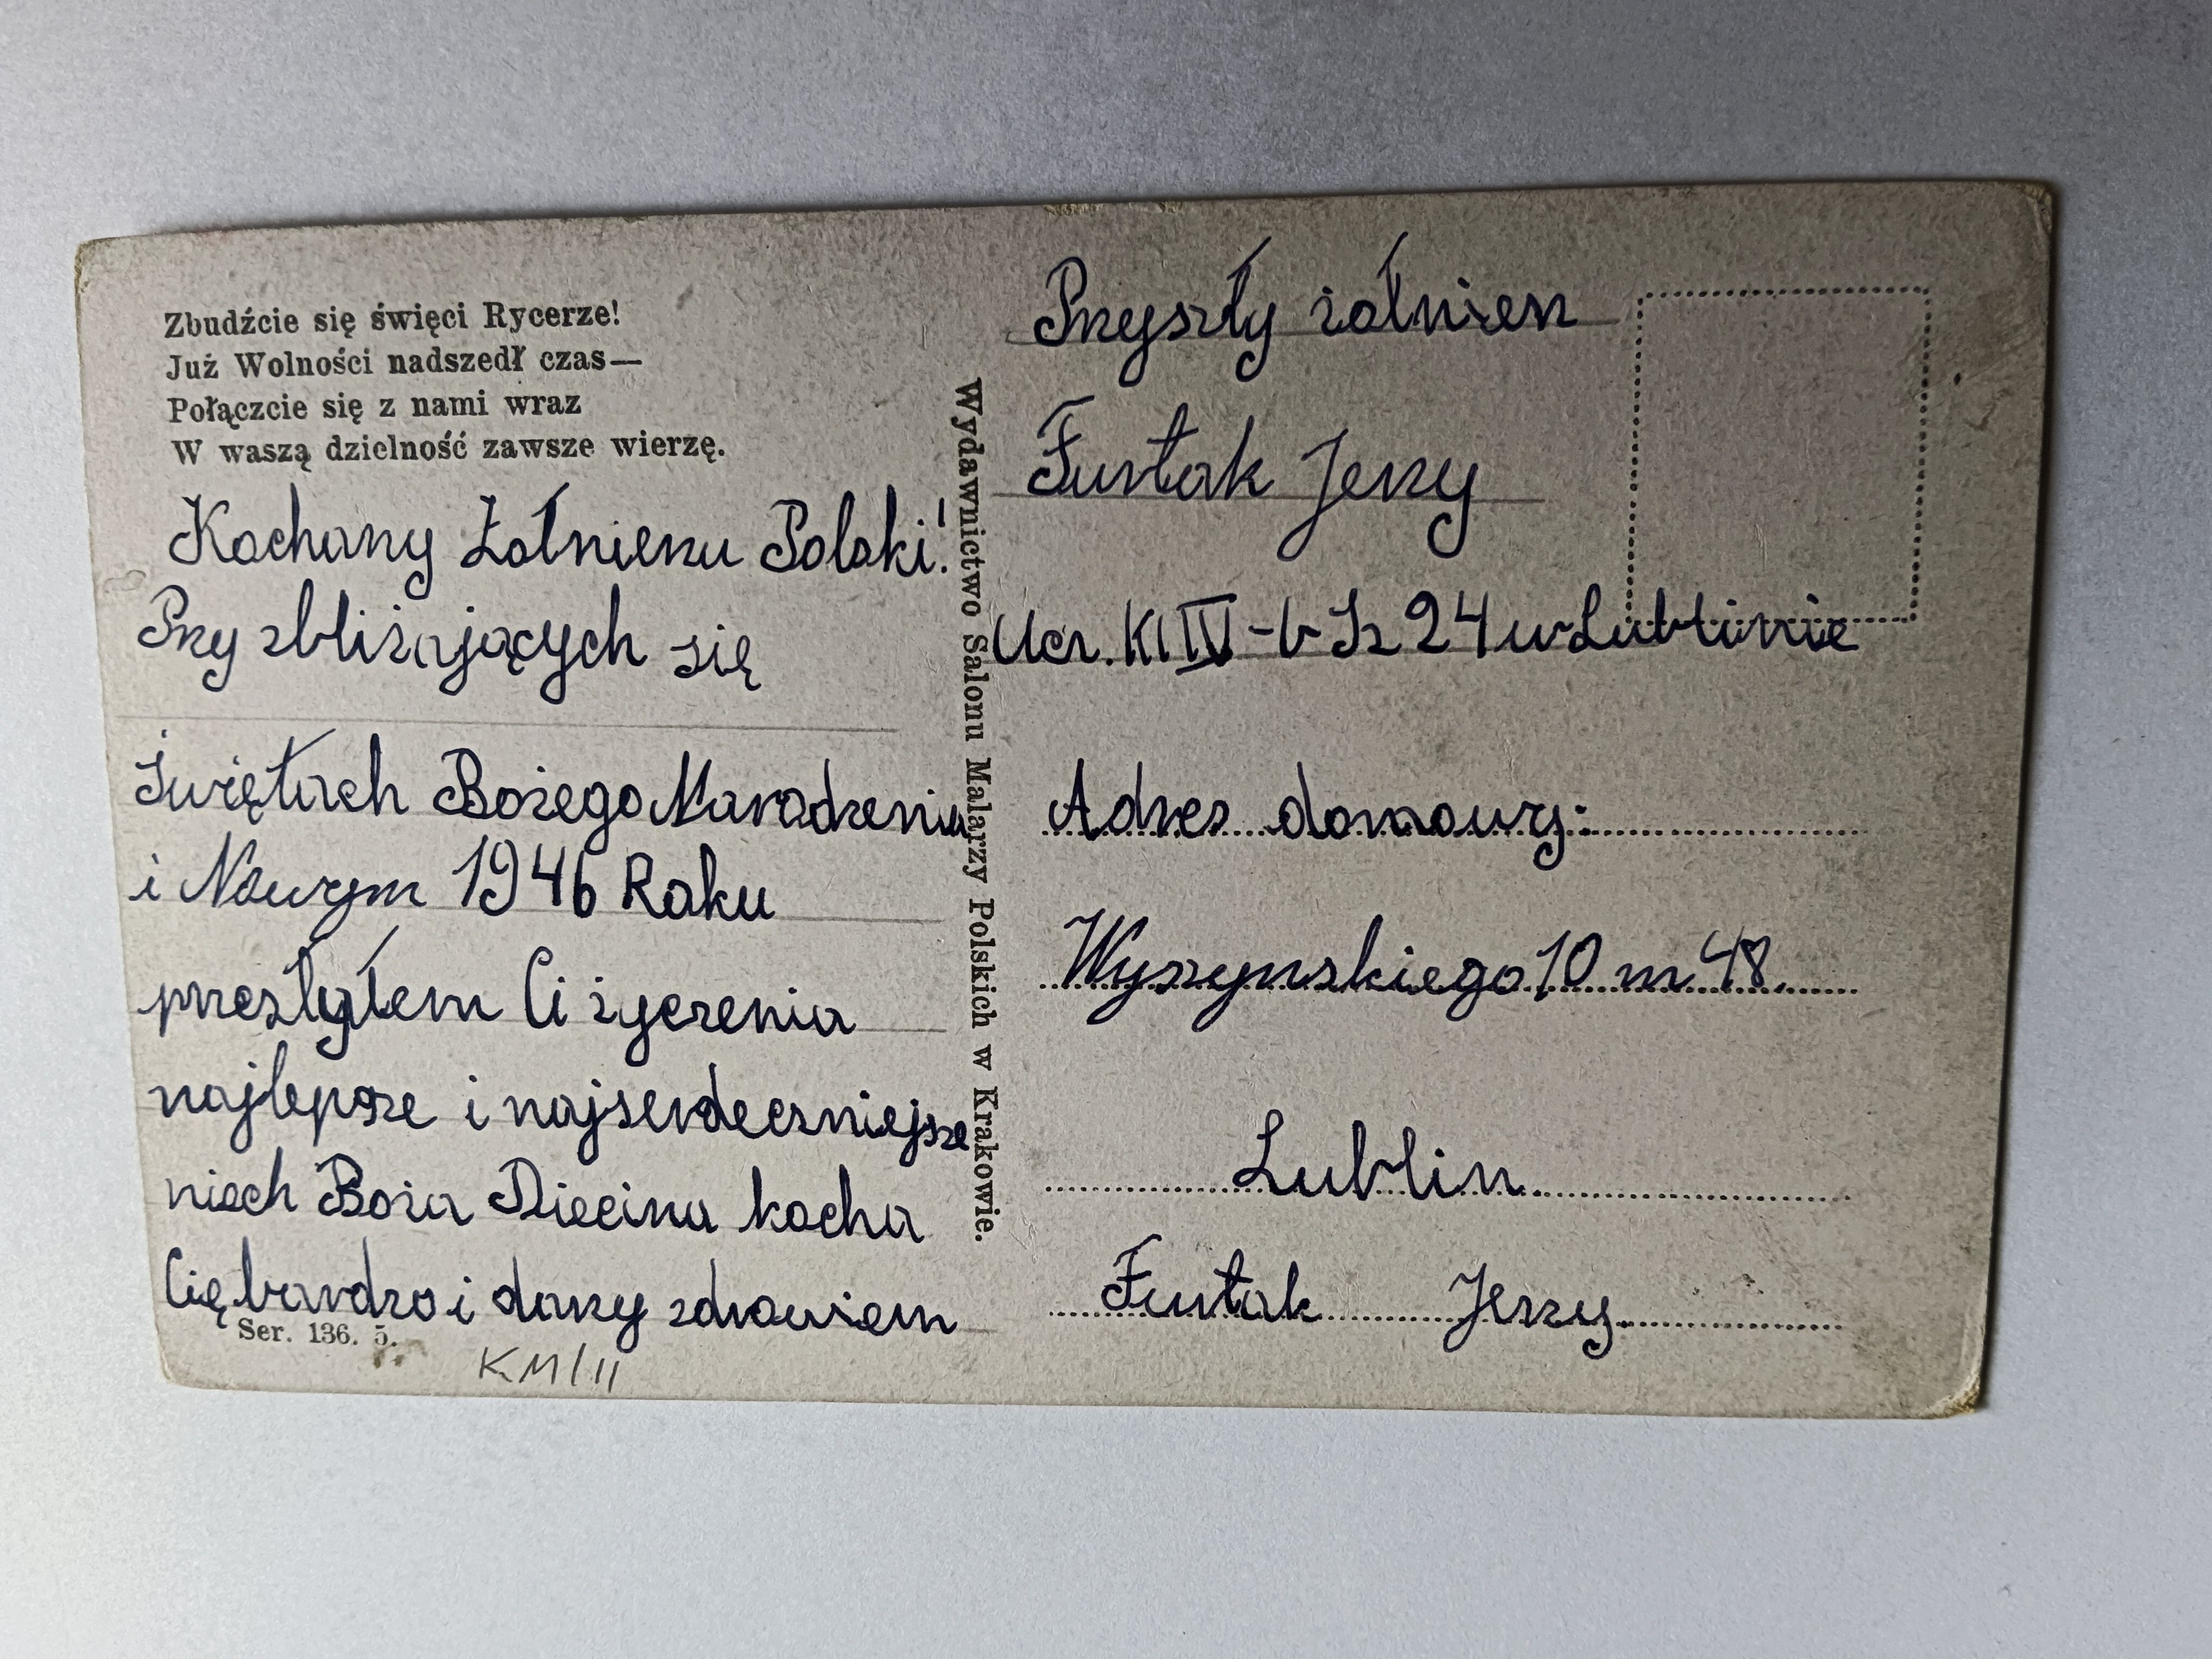 Zbudźcie się święci Rycerze!
Już Wolności nadszedł czas—
Połączcie się z nami wraz
W waszą dzielność zawsze wierzę.
Kochany Żołnierzu Polski!
Przy zbliżających się
Świętach Bożego Narodzenia
i Nowym 1946 Roku
przesłyłem Ci życzenia
najlepsze i najserdeczniejsze
niech Boża Dziecina kocha
Cię bardzo i darzy zdrowiem
Ser. 136. 5.
KM/11
Wydawnictwo Salonu Malarzy Polskich w Krakowie.
Przyszły żołnierz
Furtak Jerzy
Ucz. Kl IV-b Sz 24 w Lublinie
Adres domowy:
Wyszynskiego 10 m 48.
Lublin
Furtak Jerzy.